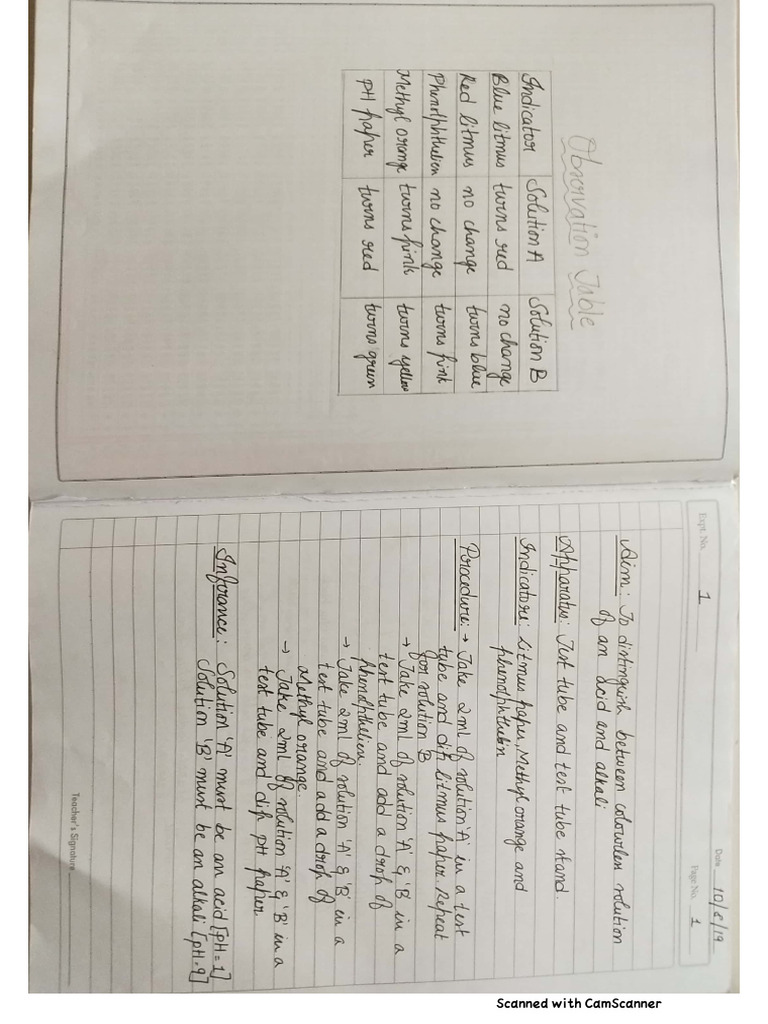 Observation Table
Indicator Solution A Solution B
Blue litmus turns red no change
Red litmus no change turns blue
Phenolphthelien no change turns pink
Methyl orange turns pink turns yellow
pH paper turns red turns green
Date 10/6/19
Expt. No. 1 Page No. 1
Aim: To distinguish between colourless solution
of an acid and alkali
Apparatus: Test tube and test tube stand.
Indicators: Litmus paper, Methyl orange and
phenolphthelin
Procedure: → Take 2ml of solution 'A' in a test
tube and dip litmus paper. Repeat
for solution B
→ Take 2ml of solution 'A' & 'B' in a
test tube and add a drop of
phenolpthelien.
→ Take 2ml of solution 'A' & 'B' in a
test tube and add a drop of
Methyl orange.
→ Take 2ml of solution 'A' & 'B' in a
test tube and dip pH paper.
Inferance: Solution 'A' must be an acid [pH=1]
Solution 'B' must be an alkali [pH=9]
Teacher's Signature
Scanned with CamScanner